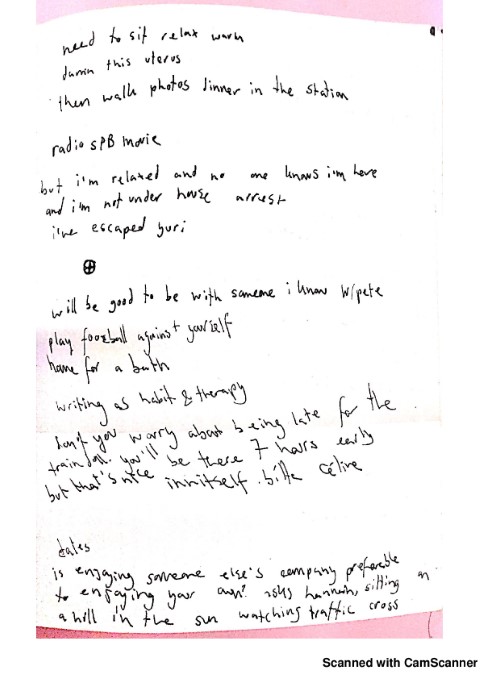 need to sit relax warm
damn this uterus
then walk photos dinner in the station
radio SPB movie
but i'm relaxed and no one knows i'm here
and i'm not under house arrest
i've escaped yuri
will be good to be with someone i know w/pete
play foosball against yourself
home for a bath
writing as habit & therapy
don't you worry about being late for the
train doll. you'll be there 7 hours early
but that's nice innitself. bitte Céline
tales
is enjoying someone else's company preferable
to enjoying your own? asks hannah, sitting on
a hill in the sun watching traffic cross
Scanned with CamScanner